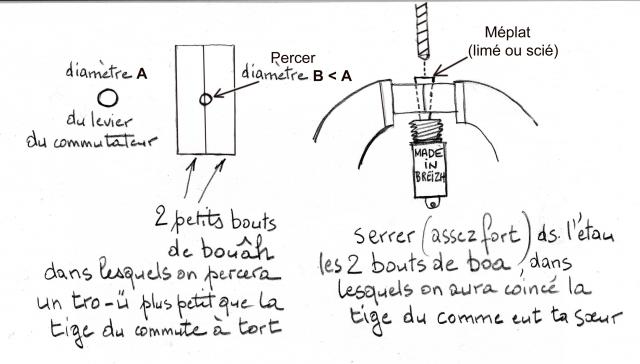 diamètre A
du levier
du commutateur
Percer
diamètre B < A
2 petits bouts
de bouâh
dans lesquels on percera
un tro-ü plus petit que la
tige du commute à tort
Méplat
(limé ou scié)
MADE
IN
BREIZH
serrer (assez fort) ds. l'étau
les 2 bouts de boa, dans
lesquels on aura coincé la
tige du comme eut ta sœur